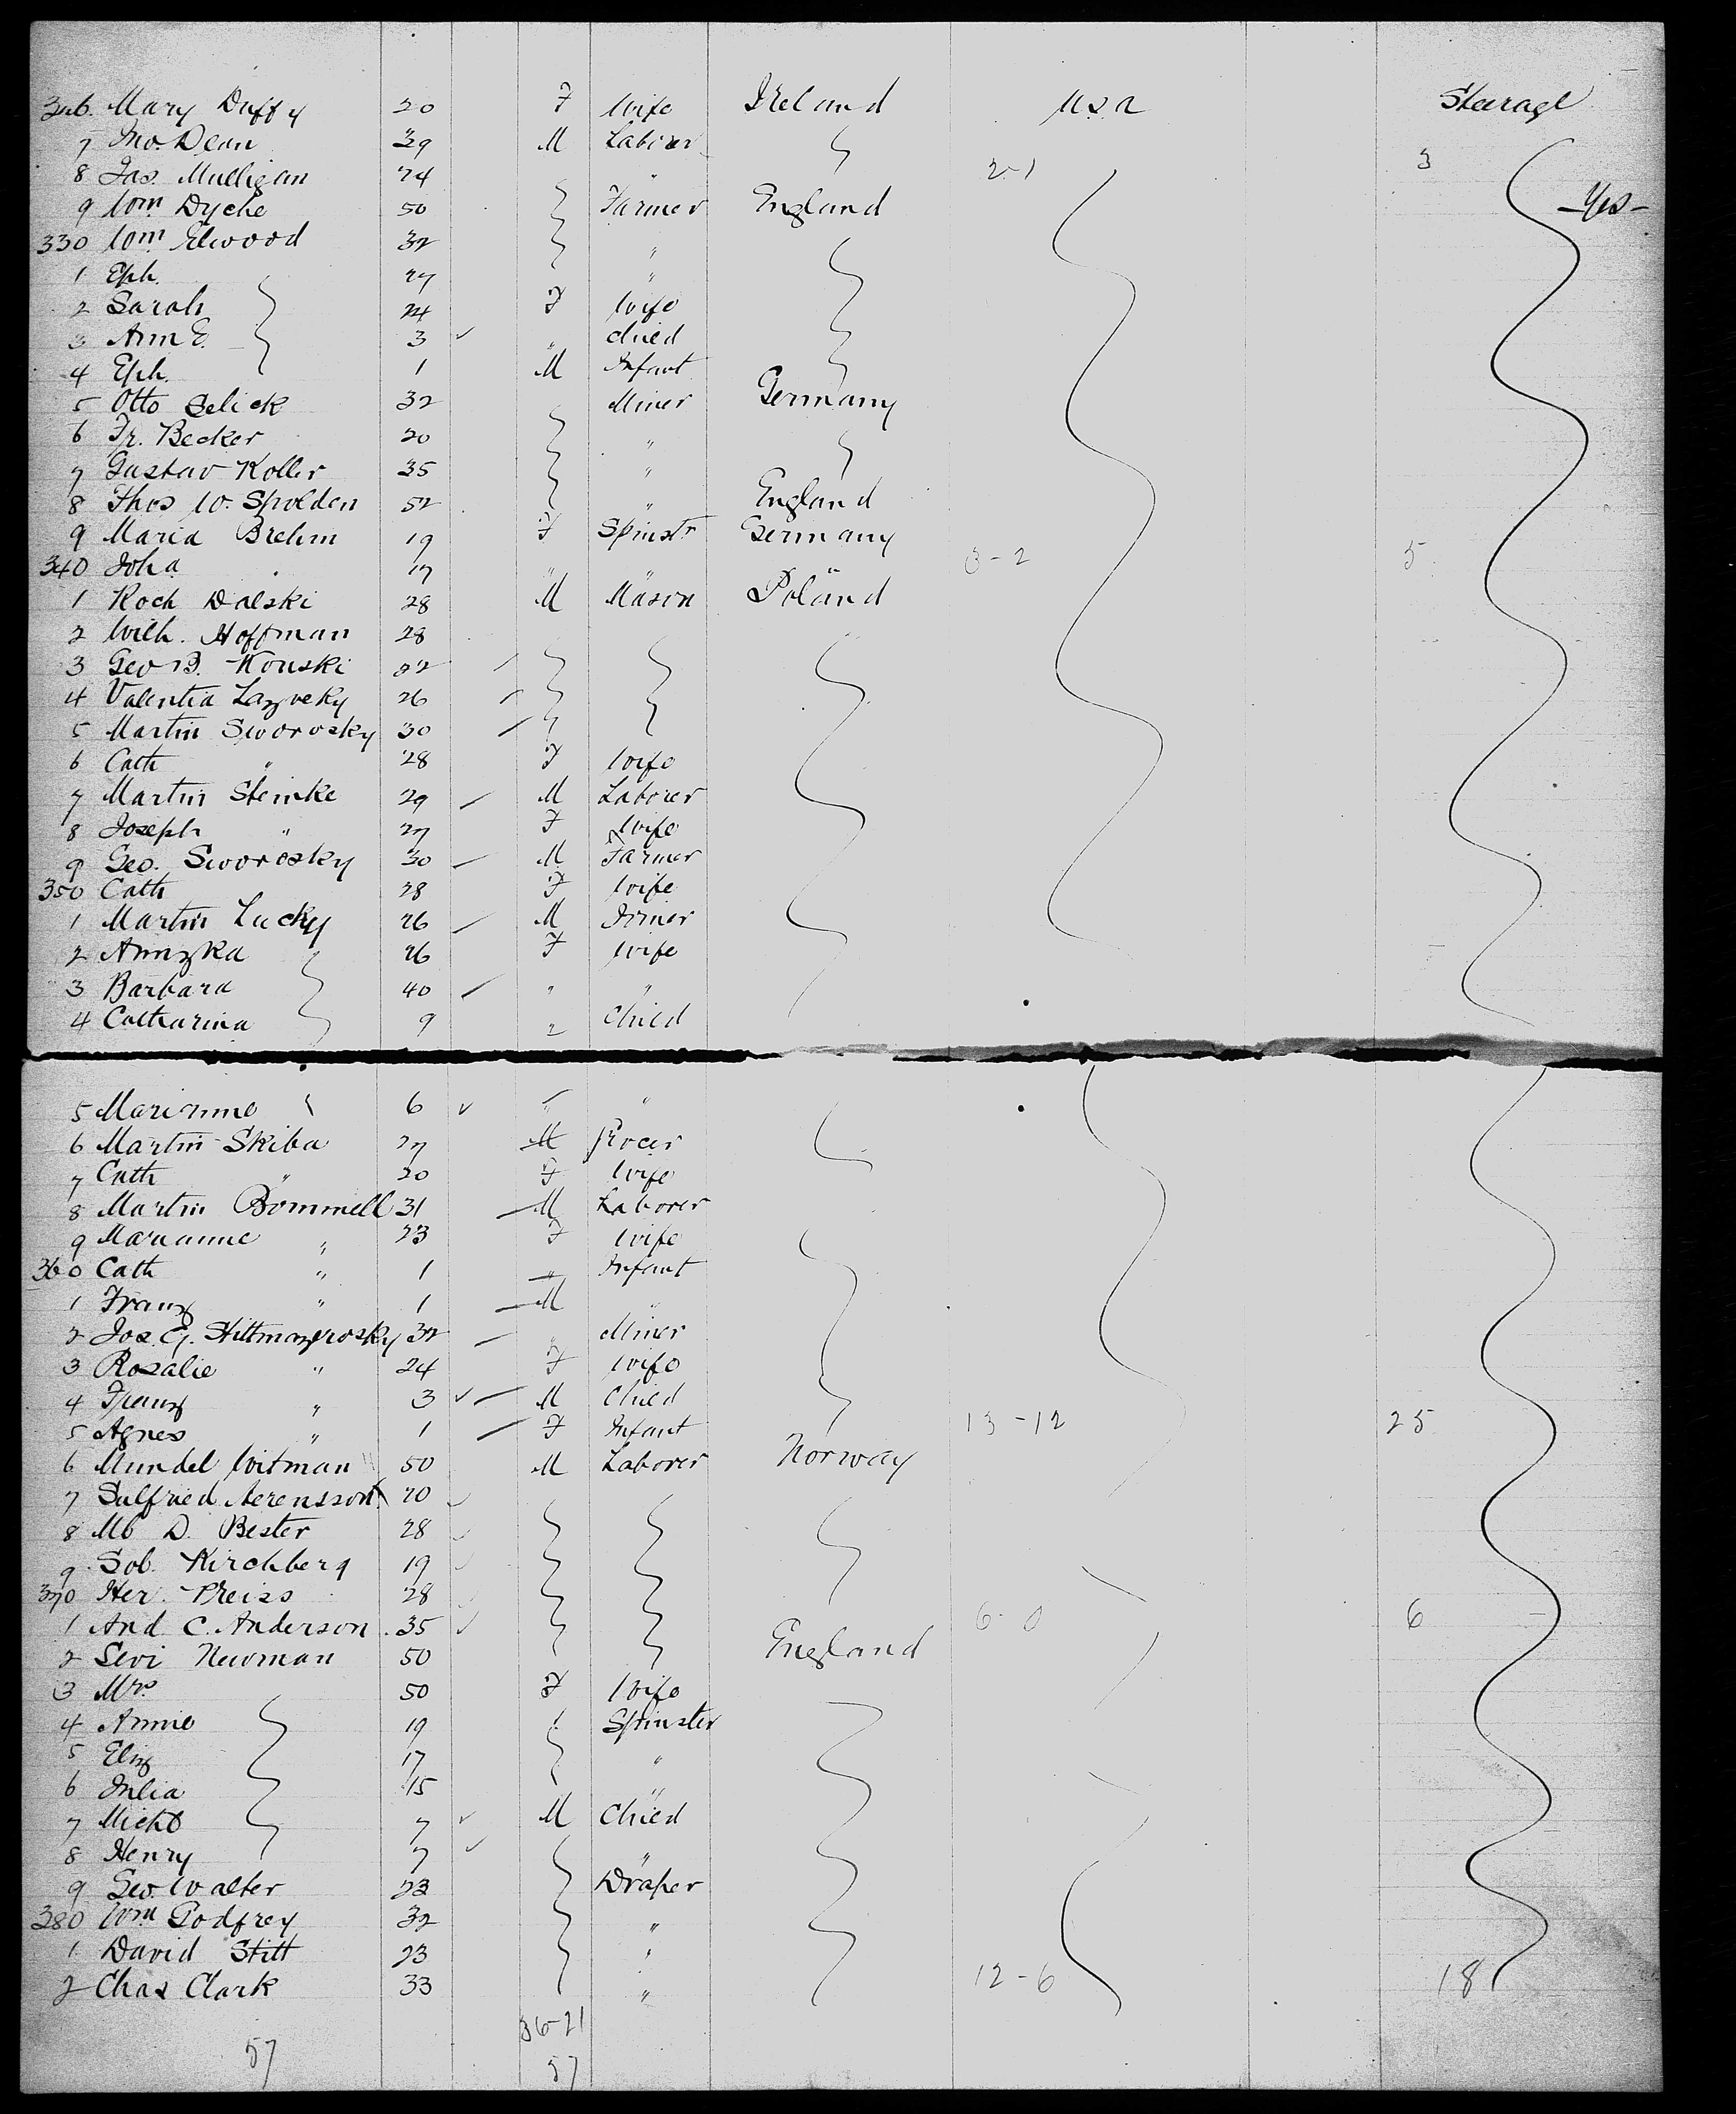 326. Mary Duffy 20 F Wife Ireland U.S.A Steerage
7 Jno. Dean 39 M Laborer
8 Jas. Mulligan 24 " 2-1 3
9 Wm Dyche 50 Farmer England -Yes-
330 Wm Elwood 32 "
1 Eph. 27 "
2 Sarah 24 F Wife
3 Ann E. 3 ✓ " Child
4 Eph. 1 M Infant
5 Otto Selick 32 Miner Germany
6 Fr. Becker 20 "
7 Gustav Koller 35 "
8 Thos W. Spolden 52 " England
9 Maria Brehm 19 F Spinstr Germany
340 Joha " 17 " " " 3-2 5
1 Roch Dalski 28 M Mason Poland
2 Wilh. Hoffman 28
3 Geo B. Konski 32
4 Valentia Lazveky 26
5 Martin Sworosky 30
6 Cath " 28 F Wife
7 Martin Steinke 29 M Laborer
8 Joseph " 27 F Wife
9 Geo. Sworosky 30 M Farmer
350 Cath 28 F Wife
1 Martin Lucky 26 M Joiner
2 Annzka 26 F Wife
3 Barbara 40 " "
4 Catharina 9 " Child
5 Marianne 6 ✓ " "
6 Martin Skiba 27 M
7 Cath " 20 F Wife
8 Martin Bommell 31 M Laborer
9 Marianne " 23 F Wife
360 Cath " 1 " Infant
1 Franz " 1 M "
2 Jos. 32 " Miner
3 Rosalie " 24 F Wife
4 Franz " 3 ✓ M Child
5 Agnes " 1 F Infant 13-12 25
6 Mundel Witman 50 M Laborer Norway
7 20
8 D. Bester 28
9 Sob. Kirchberg 19
370 Her. Preiss 28
1 And C. Anderson 35 6-0 6
2 Levi Newman 50 England
3 Mrs. 50 F Wife
4 Annie 19 Spinster
5 Eliz 17 "
6 Julia 15 "
7 Michl 7 ✓ M Child
8 Henry 7 ✓ "
9 Geo. Walter 23 Draper
380 Wm Godfrey 32 "
1 David Stitt 23 "
2 Chas Clark 33 " 12-6 18
36-21
57 57